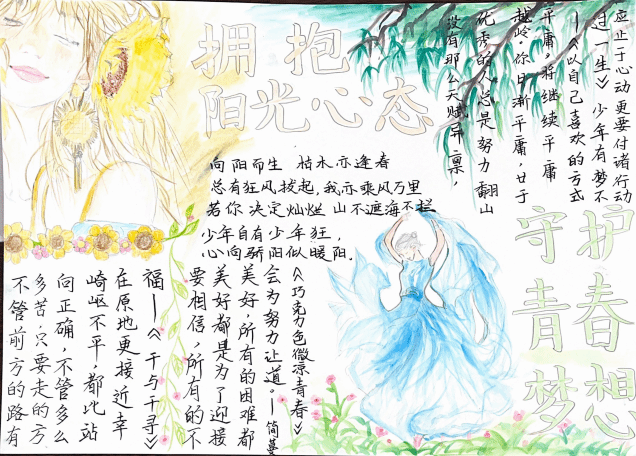 拥抱
阳光心态
没有那么天赋异禀，
优秀的人总是努力翻山
越岭。你日渐平庸，甘于
平庸，将继续平庸
——《以自己喜欢的方式
过一生》 少年有梦不
应止于心动更要付诸行动
向阳而生 枯木亦逢春
总有狂风拔起，我亦乘风万里
若你决定灿烂 山不遮海不拦
少年自有少年狂，
心向骄阳似暖阳。
守护
青春
梦想
不管前方的路有
多苦，只要走的方
向正确，不管多么
崎岖不平，都比站
在原地更接近幸
福——《千与千寻》
要相信，所有的不
美好都是为了迎接
美好，所有的困难都
会为努力让道。——简蔓
《巧克力色微凉青春》